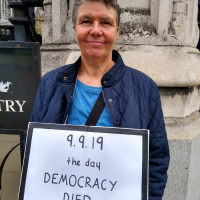 TRY
9.9.19
the day
DEMOCRACY
DIED